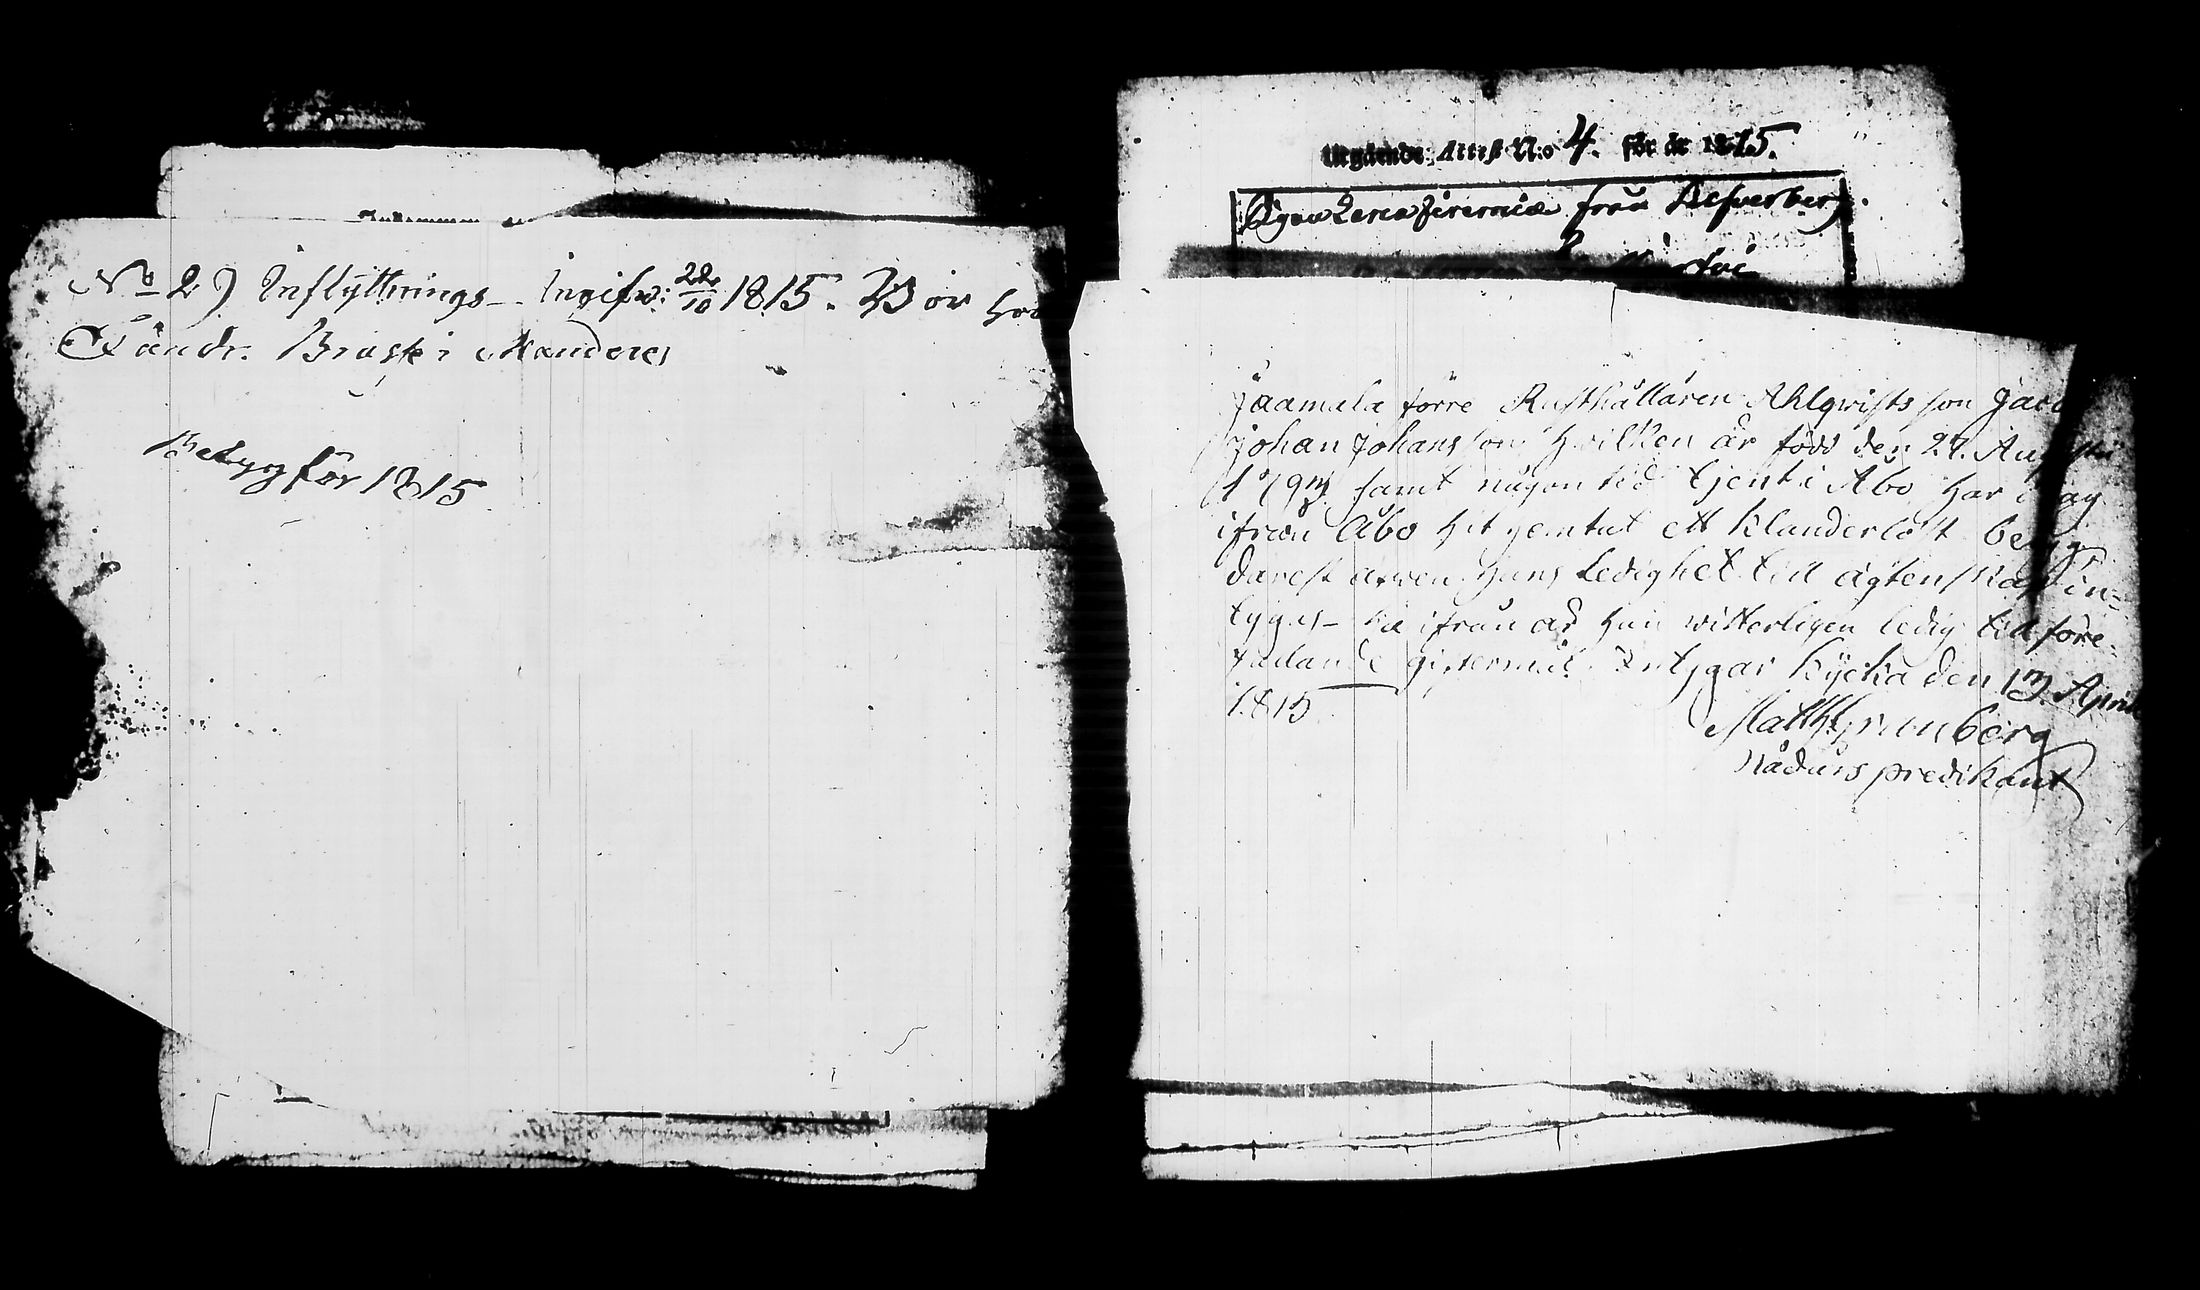 No 2) Inflyttnings- Ingifw: 22/10 1815. Bor hos
Ländr. Braske i Manderes
Betyg för 1815
Utgående Attest N:o 4. för år 1815.
från
Jaamala förre Rusthållaren Ahlqvists son Jac
Johan Johansson hvilken är född den 27. Augusti
179 samt någon tid tjent i Åbo har i dag
ifrån Åbo hit hemtat ett klanderlöst betyg
darest äfwen hans ledighet till ägtenskap in-
tygas- hä ifrån är han witterligen ledig till före-
fallande giftermål. Intygar Kycka den 13 April
1815
Matth Grunberg
Nådårs predikant